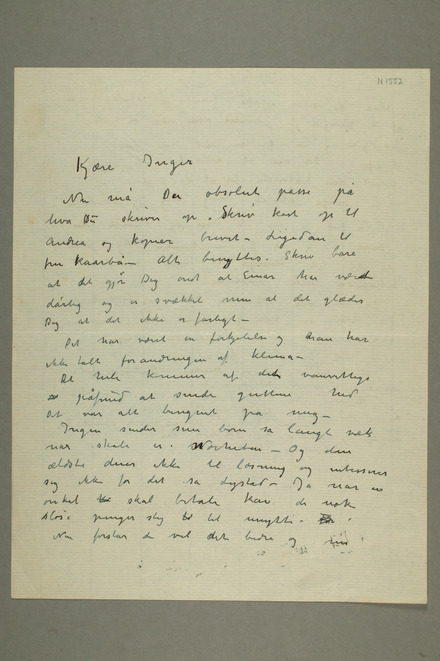 N 1552
Kjære Inger
Nu må De absolut passe på
hva Du skriver op. Skriv kort op til
Andrea og kopier brevet – Ligedan til
fru Kaarbö – Alt benyttes. Skriv bare
at det gjør Dig ondt at Einar har været
dårlig og er svækket men at det glæder
Dig at det ikke er farligt –
Det har været en forkjølelse og han har
ikke tålt forandringen af klima –
Det hele kommer af den vanvittige
påfund at sende guttene ned
Det var alt tvunget på mig –
Ingen sender sine børn så langt væk
når skole er i Nærheten – Og den
ældste duer ikke til læsning og interesserer
sig ikke for det så dygtig – Ja når en
onkel skal betale kan de nok
sløse penger til unytte –
Nu forstår de vel det bedre og